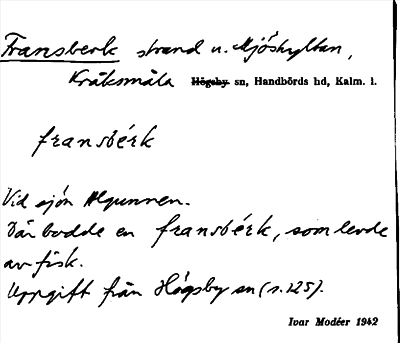 Fransberk strand u. Mjöshyltan,
Kråksmåla Högsby sn, Handbörds hd, Kalm. l.
fransbérk
Vid sjön Algunnen.
Där bodde en fransbérk, som levde
av fisk.
Uppgift från Högsby sn (s. 125).
Ivar Modéer 1942